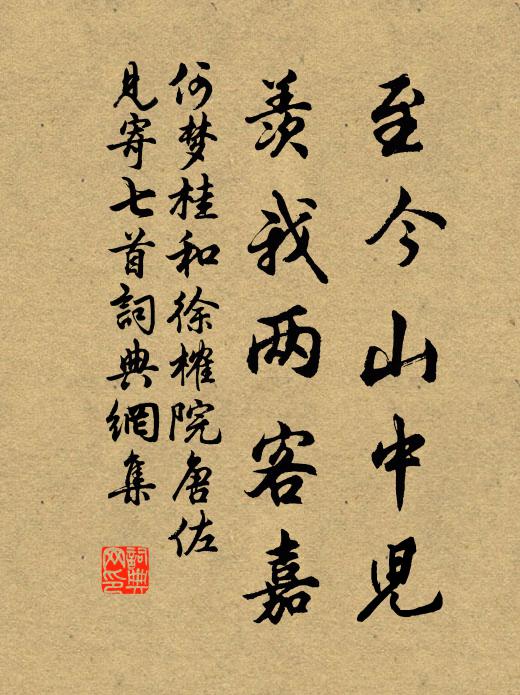 至今山中児
羨我两客嘉
何梦桂和徐榷院唐佐
見寄七首詞典網集
詞典网印